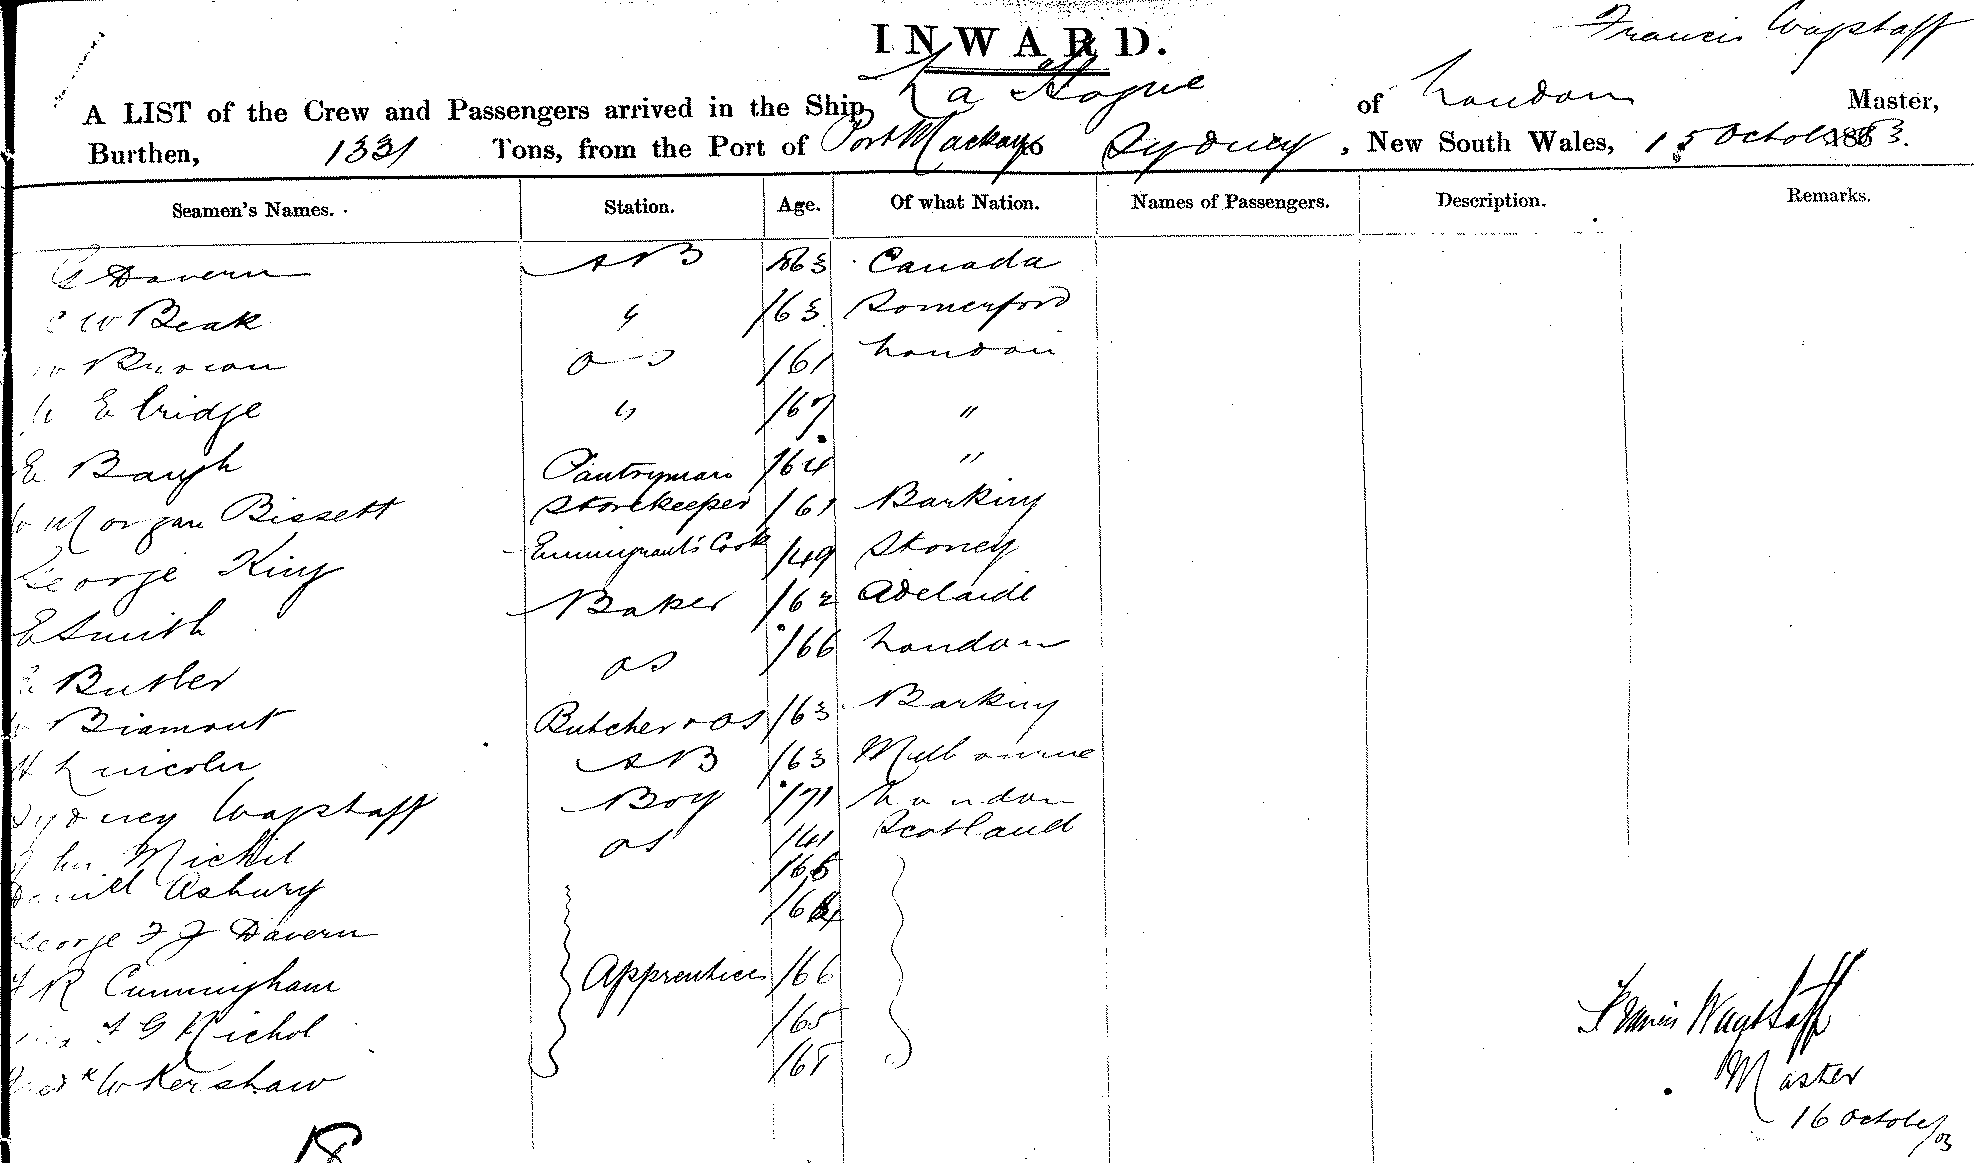 INWARD.
Francis Wagstaff
A LIST of the Crew and Passengers arrived in the Ship La Hogue of London Master,
Burthen, 1331 Tons, from the Port of Port Mackay to Sydney, New South Wales, 15 October 1883.
Seamen's Names. Station. Age. Of what Nation. Names of Passengers. Description. Remarks.
Davern AB 63 Canada
W Beak " /63 Somerford
OS /61 London
Elridge " /67 "
E Baugh Pantryman /64 "
Morgan Bissett Storekeeper /61 Barking
George King Emmigrant's Cook /49 Stoney
E Smith Baker /62 Adelaide
Butler OS /66 London
Biamont Butcher + OS /63 Barking
H Lincoln AB /63 Melbourne
Sydney Wagstaff Boy /71 London
John Michil OS /41 Scotland
Daniel Asbury /65
George F J Davern /64
R Cunningham Apprentices /66
A G Nichol /65
W Kershaw /65
Francis Wagstaff
Master
16 October/83
18